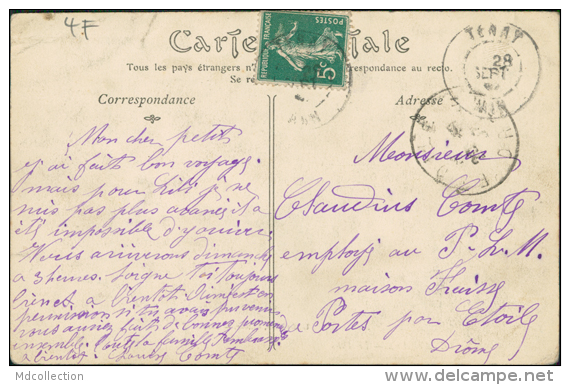 4F
Carte Postale
Tous les pays étrangers n' correspondance au recto.
Se re
Correspondance
Adresse
RÉPUBLIQUE FRANÇAISE
POSTES
5c
TENAY
28
SEPT
AIN
AIN
Mon cher petit
j'ai fait bon voyage
mais pour je ne
suis pas plus avancé il a
été impossible d'y
Nous arriverons dimanche
à 3 heures. Soigne toi toujours
bien et à bientôt
permission si tu avais pu venir
nous aurions fait de bonnes promenades
ensemble. Toute la famille
à bientôt. Comte
Monsieur
Claudius Comte
employé au P. L. M.
maison
à Portes par Etoile
Drôme
Mdcollection
delcampe.net